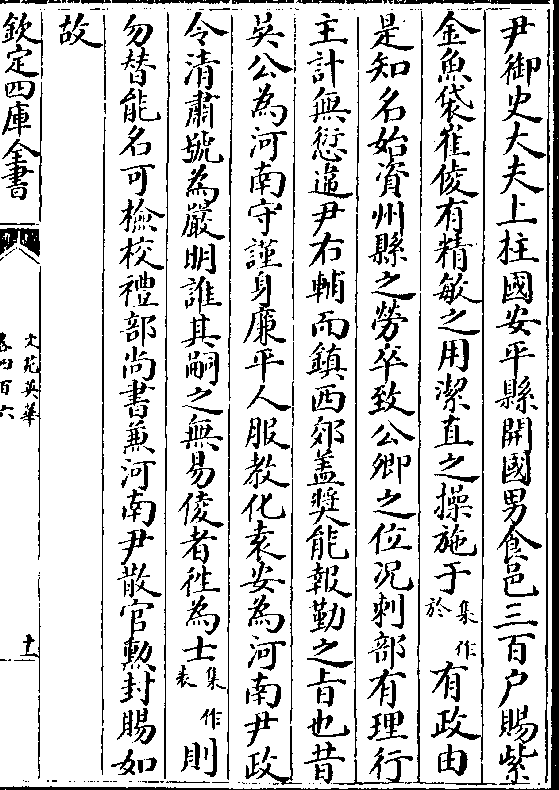 尹御史大夫上柱國安平縣開國男食邑三百户賜紫
金魚袋崔倰有精敏之用潔直之操施于集作於有政由
是知名始資州縣之勞卒致公卿之位况刺部有理行
主計無愆違尹右輔而鎮西郊盖奬能報勤之旨也昔
吳公為河南守謹身廉平人服教化袁安為河南尹政
令清肅號為嚴明誰其嗣之無易倰者徃為士集作表則
勿替能名可檢校禮部尚書兼河南尹散官勲封賜如
故
欽定四庫全書
文苑英華
卷四百六
十一